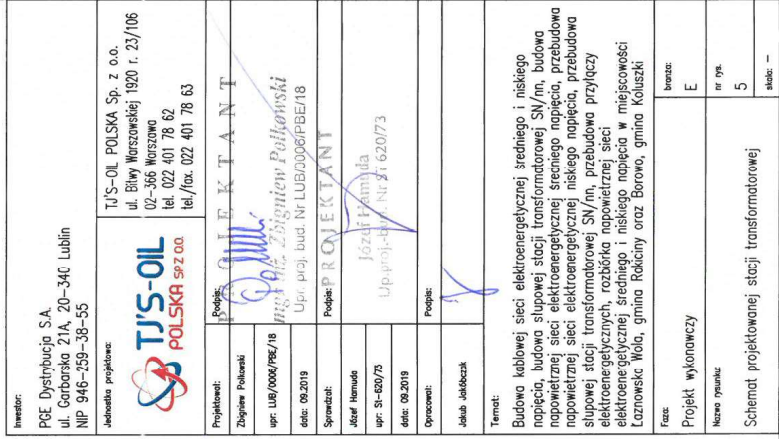 Inwestor:
PGE Dystrybucja S.A.
ul. Garbarska 21A, 20-340 Lublin
NIP 946-259-38-55
Jednostka projektowa:
TJ'S-OIL
POLSKA SP Z O.O.
TJ'S-OIL POLSKA Sp. z o.o.
ul. Bitwy Warszawskiej 1920 r. 23/106
02-366 Warszawa
tel. 022 401 78 62
tel./fax. 022 401 78 63
Projektował:
Zbigniew Polkowski
upr: LUB/0006/PBE/18
data: 09.2019
Podpis:
PROJEKTANT
mgr inż. Zbigniew Polkowski
Upr. proj. bud. Nr LUB/0006/PBE/18
Sprawdzał:
Józef Hamuda
upr: St-620/73
data: 09.2019
Podpis:
PROJEKTANT
Józef Hamuda
Up.proj.-bud. Nr St 620/73
Opracował:
Jakub Jakóbczak
Podpis:
Temat:
Budowa kablowej sieci elektroenergetycznej średniego i niskiego
napięcia, budowa słupowej stacji transformatorowej SN/nn, budowa
napowietrznej sieci elektroenergetycznej średniego napięcia, przebudowa
napowietrznej sieci elektroenergetycznej niskiego napięcia, przebudowa
słupowej stacji transformatorowej SN/nn, przebudowa przyłączy
elektroenergetycznych, rozbiórka napowietrznej sieci
elektroenergetycznej średniego i niskiego napięcia w miejscowości
Łaznowska Wola, gmina Rokiciny oraz Borowo, gmina Koluszki
Faza:
Projekt wykonawczy
branża:
E
Nazwa rysunku:
Schemat projektowanej stacji transformatorowej
nr rys.
5
skala: –